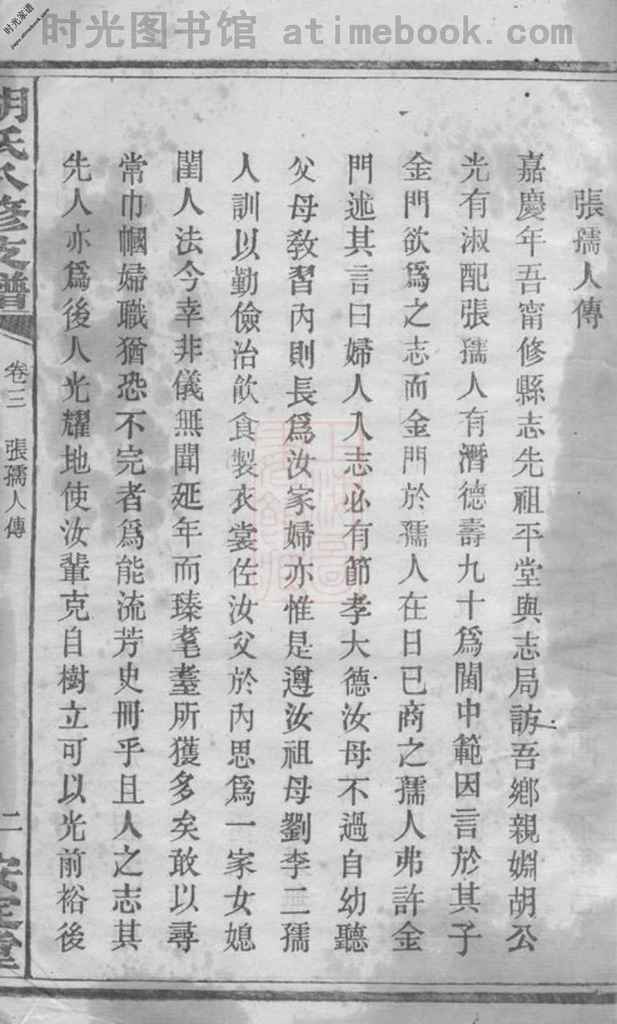 时光图书馆 atimebook.com
时光家谱
張孺人傳
嘉慶年吾甯修縣志先祖平堂與志局訪吾鄉親婣胡公
光有淑配張孺人有潛德壽九十爲閫中範因言於其子
金門欲爲之志而金門於孺人在日已商之孺人弗許金
門述其言曰婦人入志必有節孝大德汝母不過自幼聽
父母敎習內則長爲汝家婦亦惟是遵汝祖母劉李二孺
人訓以勤儉治飮食製衣裳佐汝父於內思爲一家女媳
閨人法今幸非儀無聞延年而臻耄耋所獲多矣敢以尋
常巾幗婦職猶恐不完者爲能流芳史冊乎且人之志其
先人亦爲後人光耀地使汝輩克自樹立可以光前裕後
胡氏八修支譜 卷三 張孺人傳 二 安定堂